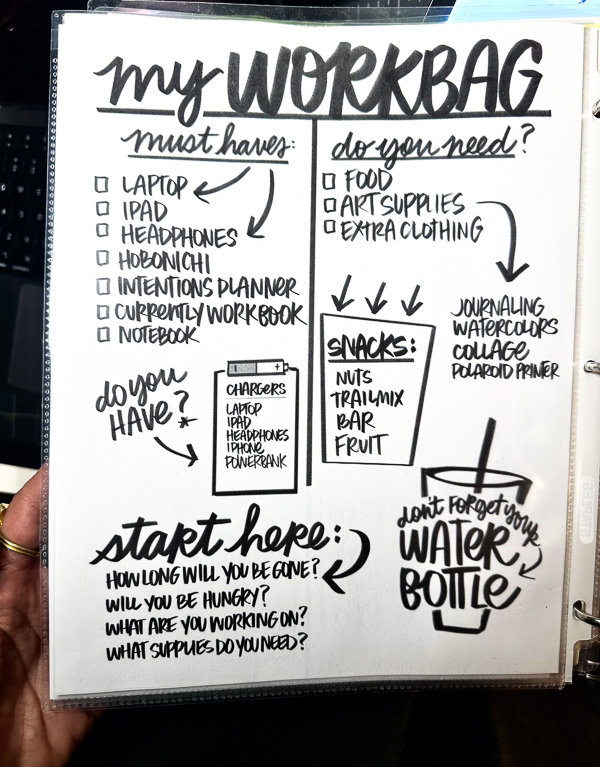 my WORKBAG
must haves:
LAPTOP
IPAD
HEADPHONES
HOBONICHI
INTENTIONS PLANNER
CURRENTLY WORKBOOK
NOTEBOOK
do you
HAVE?*
CHARGERS
LAPTOP
IPAD
HEADPHONES
IPHONE
POWERBANK
do you need?
FOOD
ART SUPPLIES
EXTRA CLOTHING
JOURNALING
WATERCOLORS
COLLAGE
POLAROID PRINTER
SNACKS:
NUTS
TRAILMIX
BAR
FRUIT
start here:
HOW LONG WILL YOU BE GONE?
WILL YOU BE HUNGRY?
WHAT ARE YOU WORKING ON?
WHAT SUPPLIES DO YOU NEED?
don't FORGET your
WATER
BOTTLE
STAPLES